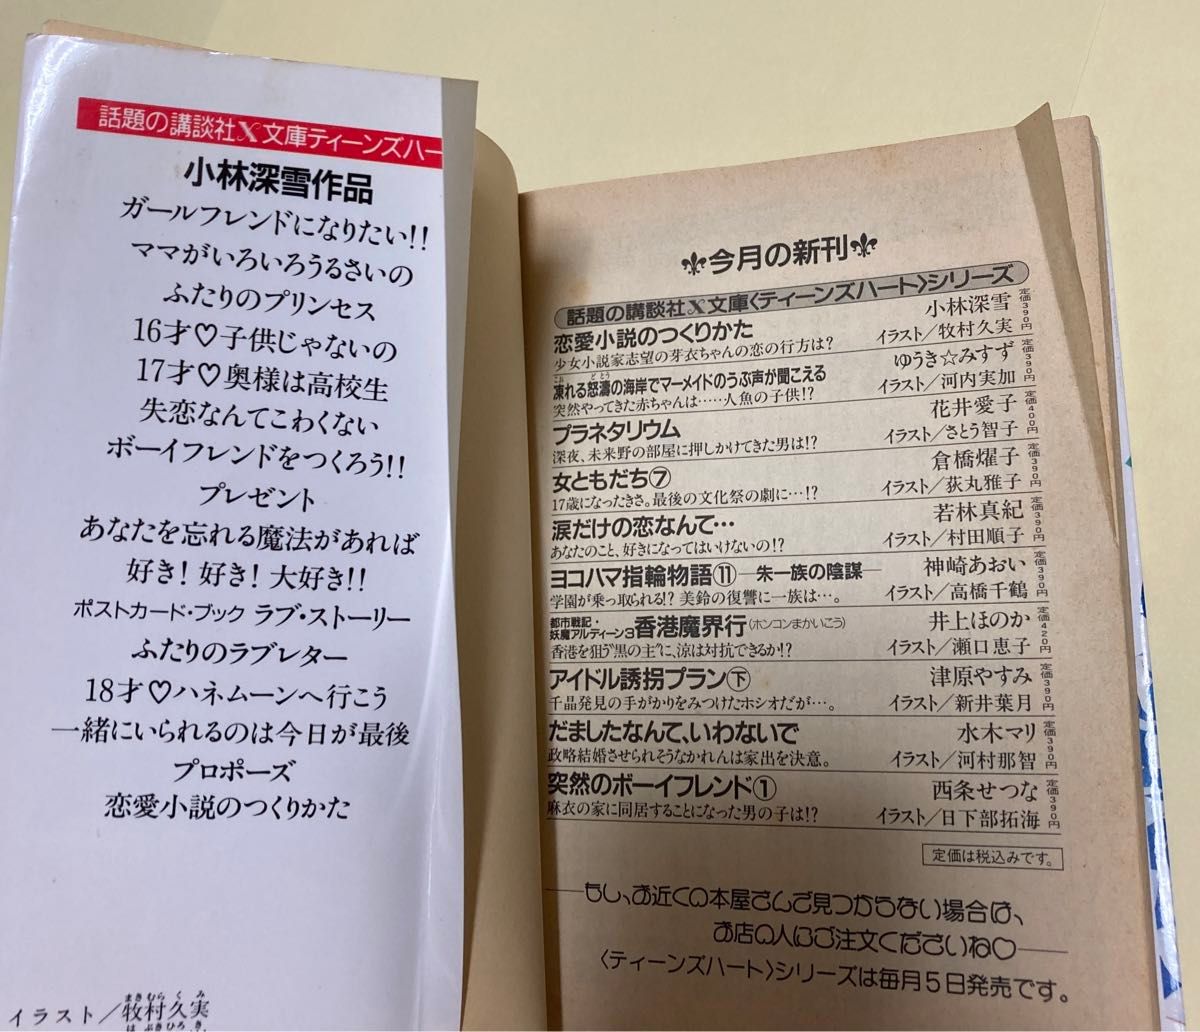 話題の講談社X文庫ティーンズハー
小林深雪作品
ガールフレンドになりたい!!
ママがいろいろうるさいの
ふたりのプリンセス
16才♡子供じゃないの
17才♡奥様は高校生
失恋なんてこわくない
ボーイフレンドをつくろう!!
プレゼント
あなたを忘れる魔法があれば
好き! 好き! 大好き!!
ポストカード・ブック ラブ・ストーリー
ふたりのラブレター
18才♡ハネムーンへ行こう
一緒にいられるのは今日が最後
プロポーズ
恋愛小説のつくりかた
まきむら く み
イラスト/牧村久実
はぶきひろき
今月の新刊
話題の講談社X文庫〈ティーンズハート〉シリーズ
恋愛小説のつくりかた 小林深雪 定価390円
少女小説家志望の芽衣ちゃんの恋の行方は? イラスト/牧村久実
こお どとう
凍れる怒濤の海岸でマーメイドのうぶ声が聞こえる ゆうき☆みすず 定価390円
突然やってきた赤ちゃんは……人魚の子供!? イラスト/河内実加
プラネタリウム 花井愛子 定価400円
深夜、未来野の部屋に押しかけてきた男は!? イラスト/さとう智子
女ともだち⑦ 倉橋燿子 定価390円
17歳になったきさ。最後の文化祭の劇に…!? イラスト/荻丸雅子
涙だけの恋なんて… 若林真紀 定価390円
あなたのこと、好きになってはいけないの!? イラスト/村田順子
ヨコハマ指輪物語⑪—朱一族の陰謀— 神崎あおい 定価390円
学園が乗っ取られる!? 美鈴の復讐に一族は…。 イラスト/高橋千鶴
都市戦記・妖魔アルディーン3 香港魔界行(ホンコンまかいこう) 井上ほのか 定価420円
香港を狙う"黒の主"に、涼は対抗できるか!? イラスト/瀬口恵子
アイドル誘拐プラン㊦ 津原やすみ 定価390円
千晶発見の手がかりをみつけたホシオだが…。 イラスト/新井葉月
だましたなんて、いわないで 水木マリ 定価390円
政略結婚させられそうなかれんは家出を決意。 イラスト/河村那智
突然のボーイフレンド① 西条せつな 定価390円
麻衣の家に同居することになった男の子は!? イラスト/日下部拓海
定価は税込みです。
——もし、お近くの本屋さんで見つからない場合は、
お店の人にご注文くださいね♡——
〈ティーンズハート〉シリーズは毎月5日発売です。